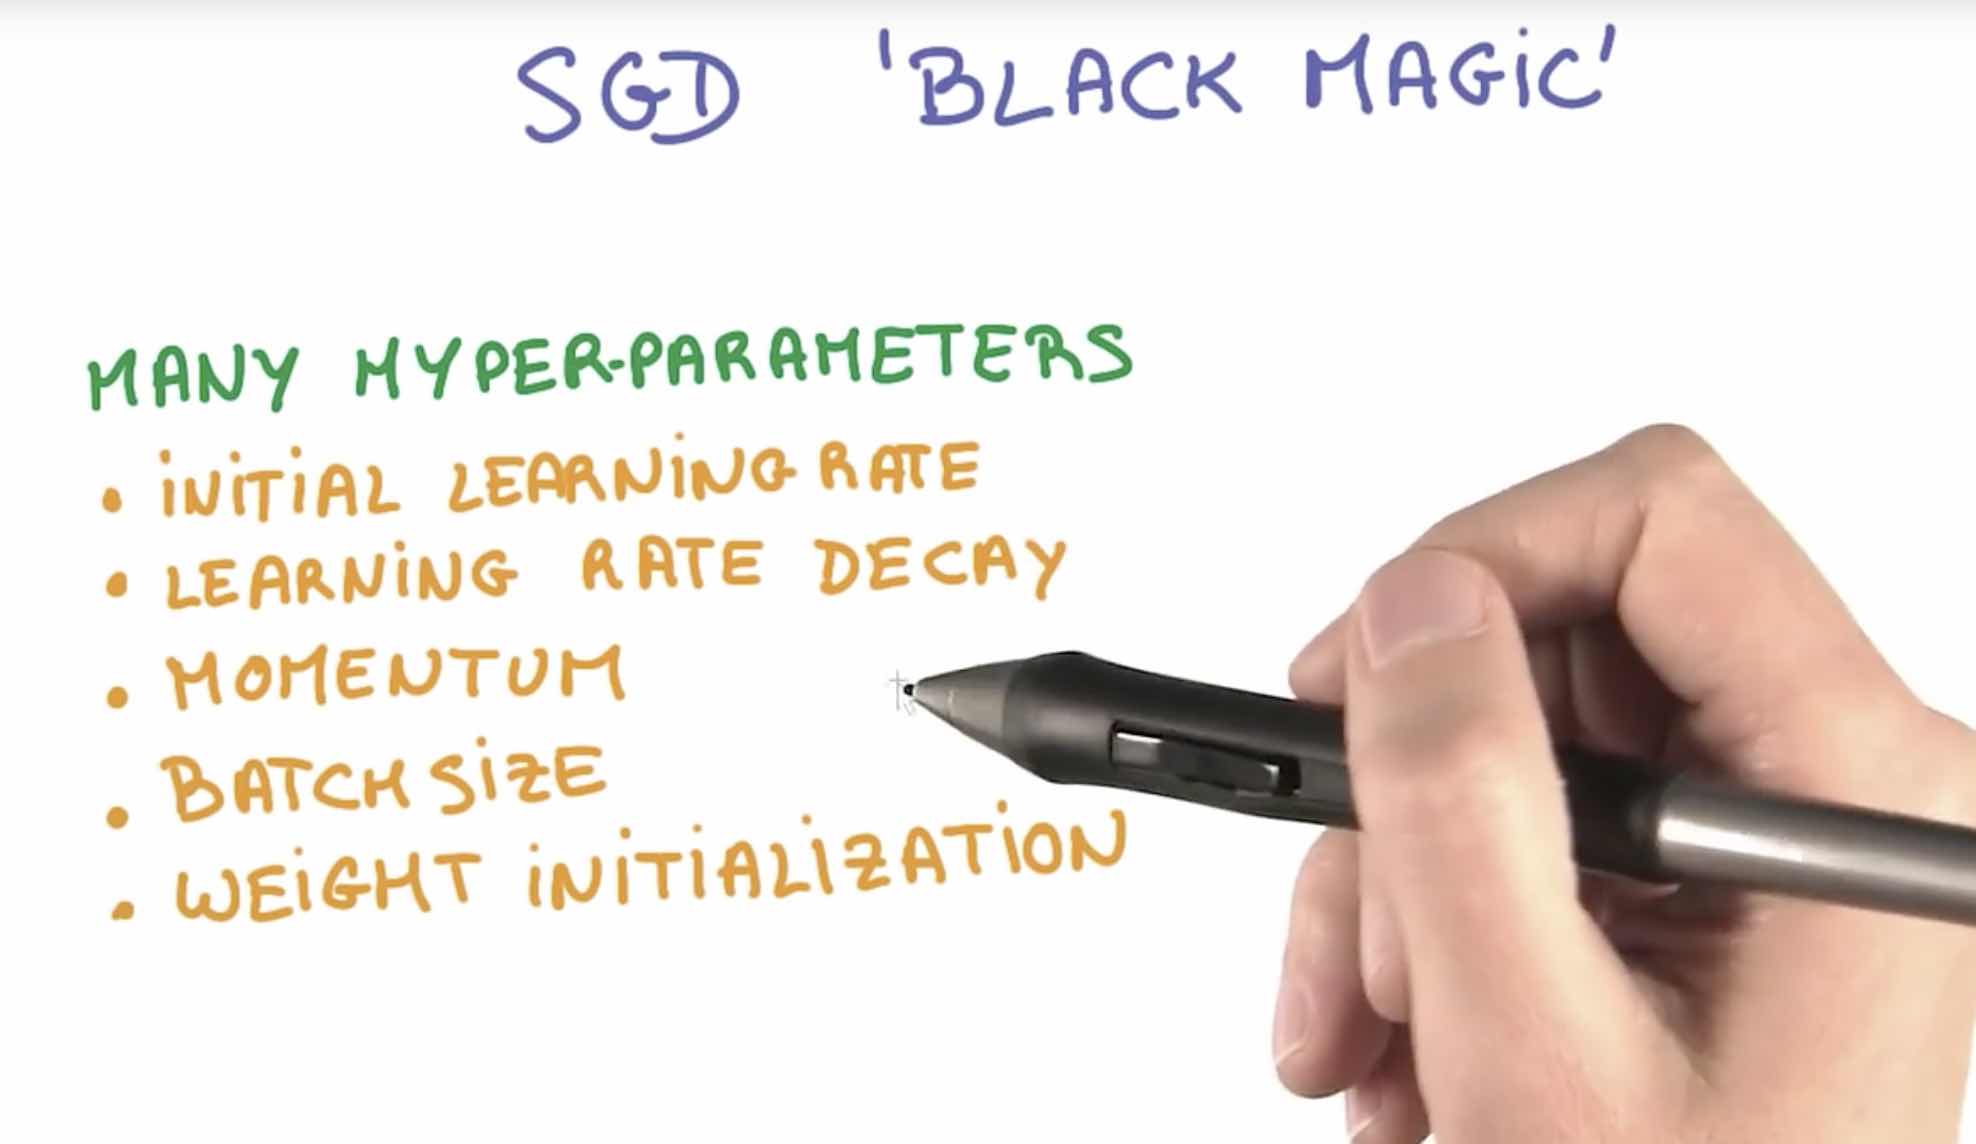 SGD 'BLACK MAGiC'
MANY HYPER-PARAMETERS
• iNiTiAL LEARNiNG RATE
• LEARNiNG RATE DECAY
• MOMENTUM
• BATCH SiZE
• WEiGHT iNiTiALiZATiON